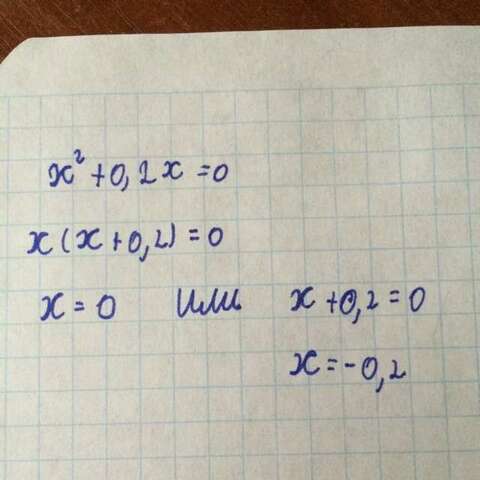 x² + 0,2x = 0
x(x + 0,2) = 0
x = 0 или x + 0,2 = 0
x = -0,2